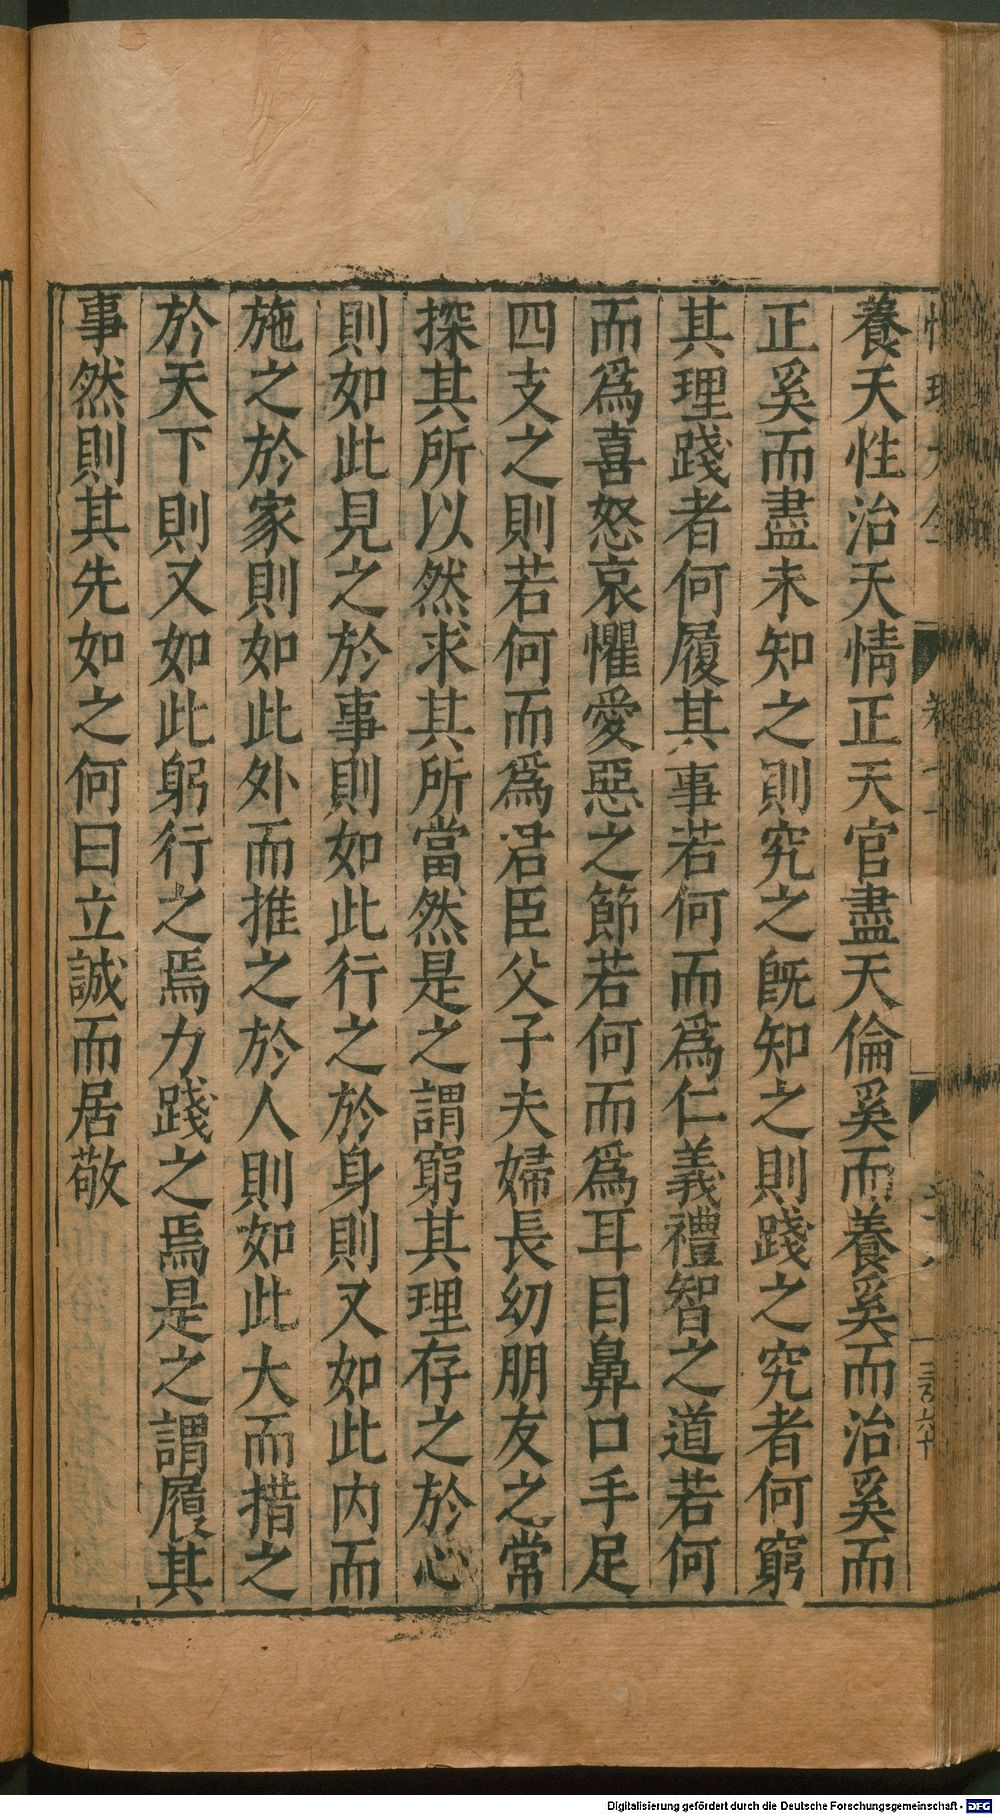 養天性治天情正天官盡天倫奚而養奚而治奚而
正奚而盡未知之則究之旣知之則踐之究者何窮
其理踐者何履其事若何而爲仁義禮智之道若何
而爲喜怒哀懼愛惡之節若何而爲耳目鼻口手足
四支之則若何而爲君臣父子夫婦長幼朋友之常
探其所以然求其所當然是之謂窮其理存之於心
則如此見之於事則如此行之於身則又如此内而
施之於家則如此外而推之於人則如此大而措之
於天下則又如此躬行之焉力踐之焉是之謂履其
事然則其先如之何曰立誠而居敬
Digitalisierung gefördert durch die Deutsche Forschungsgemeinschaft - DFG